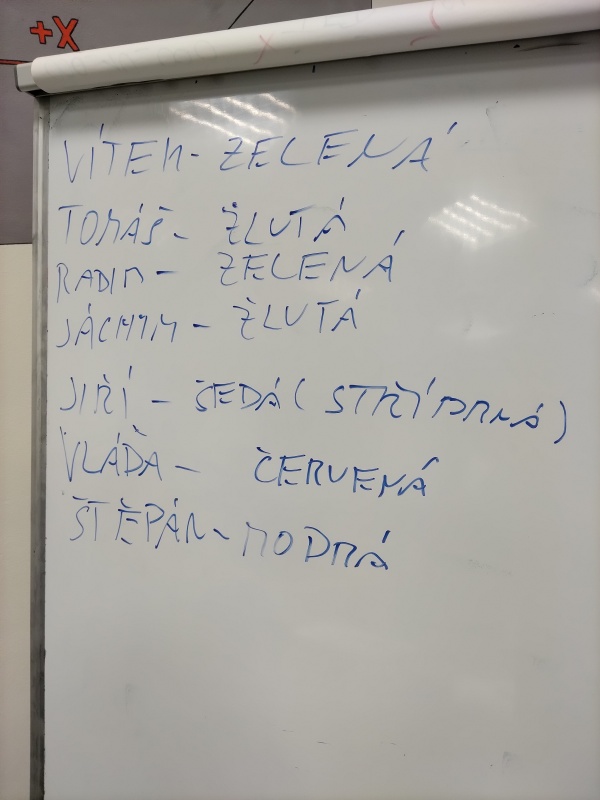 +X
VÍTEK - ZELENÁ
TOMÁŠ - ŽLUTÁ
RADIM - ZELENÁ
JÁCHYM - ŽLUTÁ
JIŘÍ - ŠEDÁ (STŘÍBRNÁ)
VLÁĎA - ČERVENÁ
ŠTĚPÁN - MODRÁ